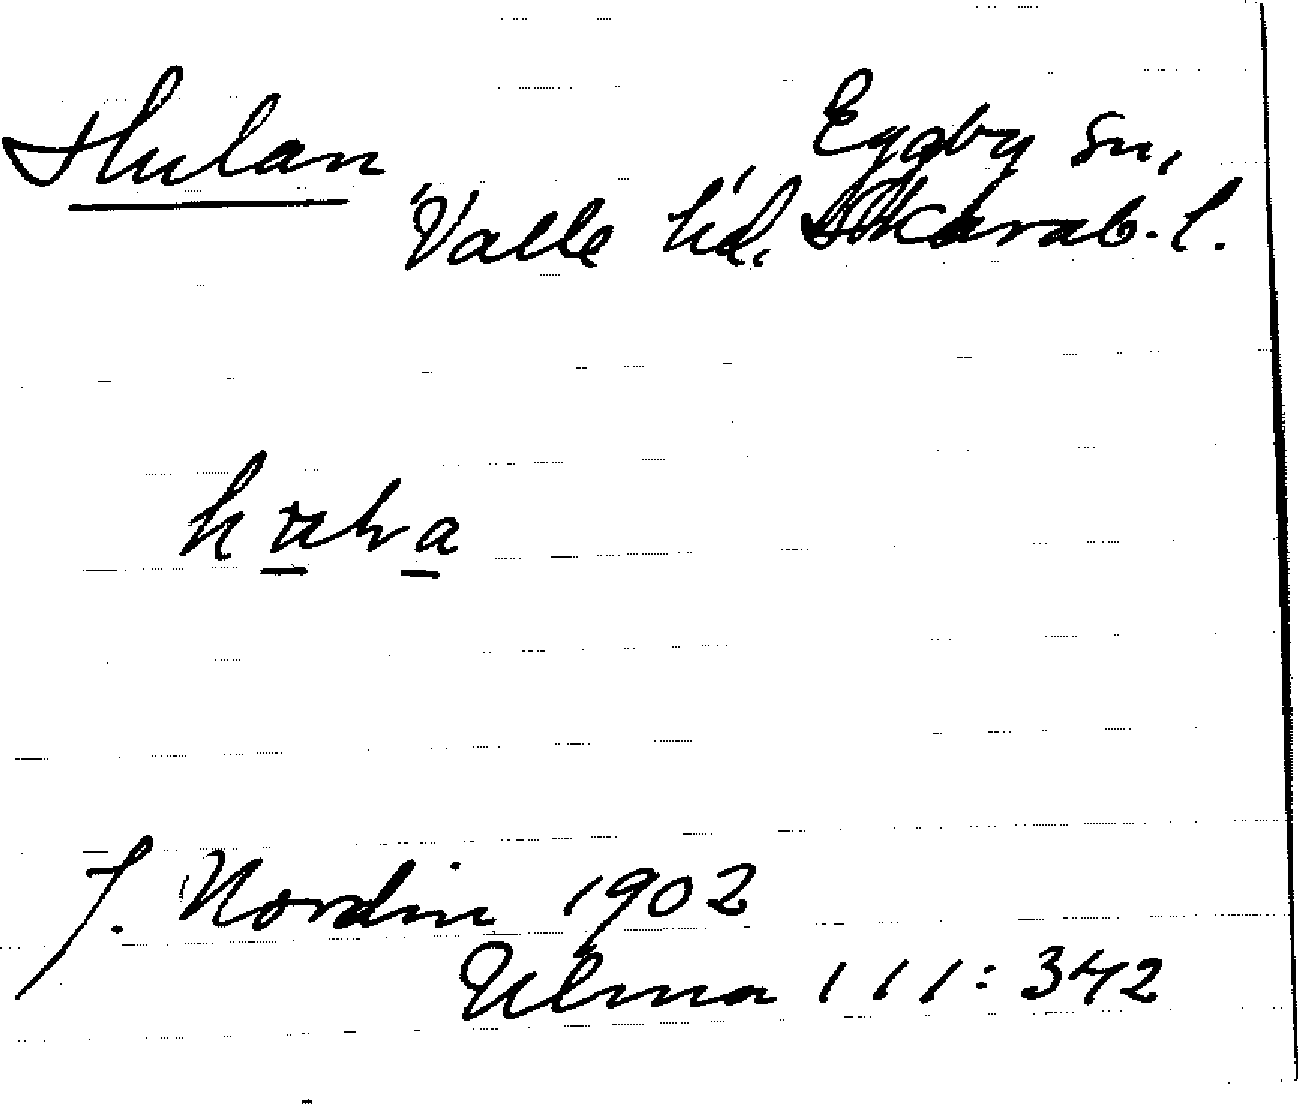 Hulan
Eggby sn,
Valle hd. Skarab. l.
J. Nordin 1902
Ulma 111:342